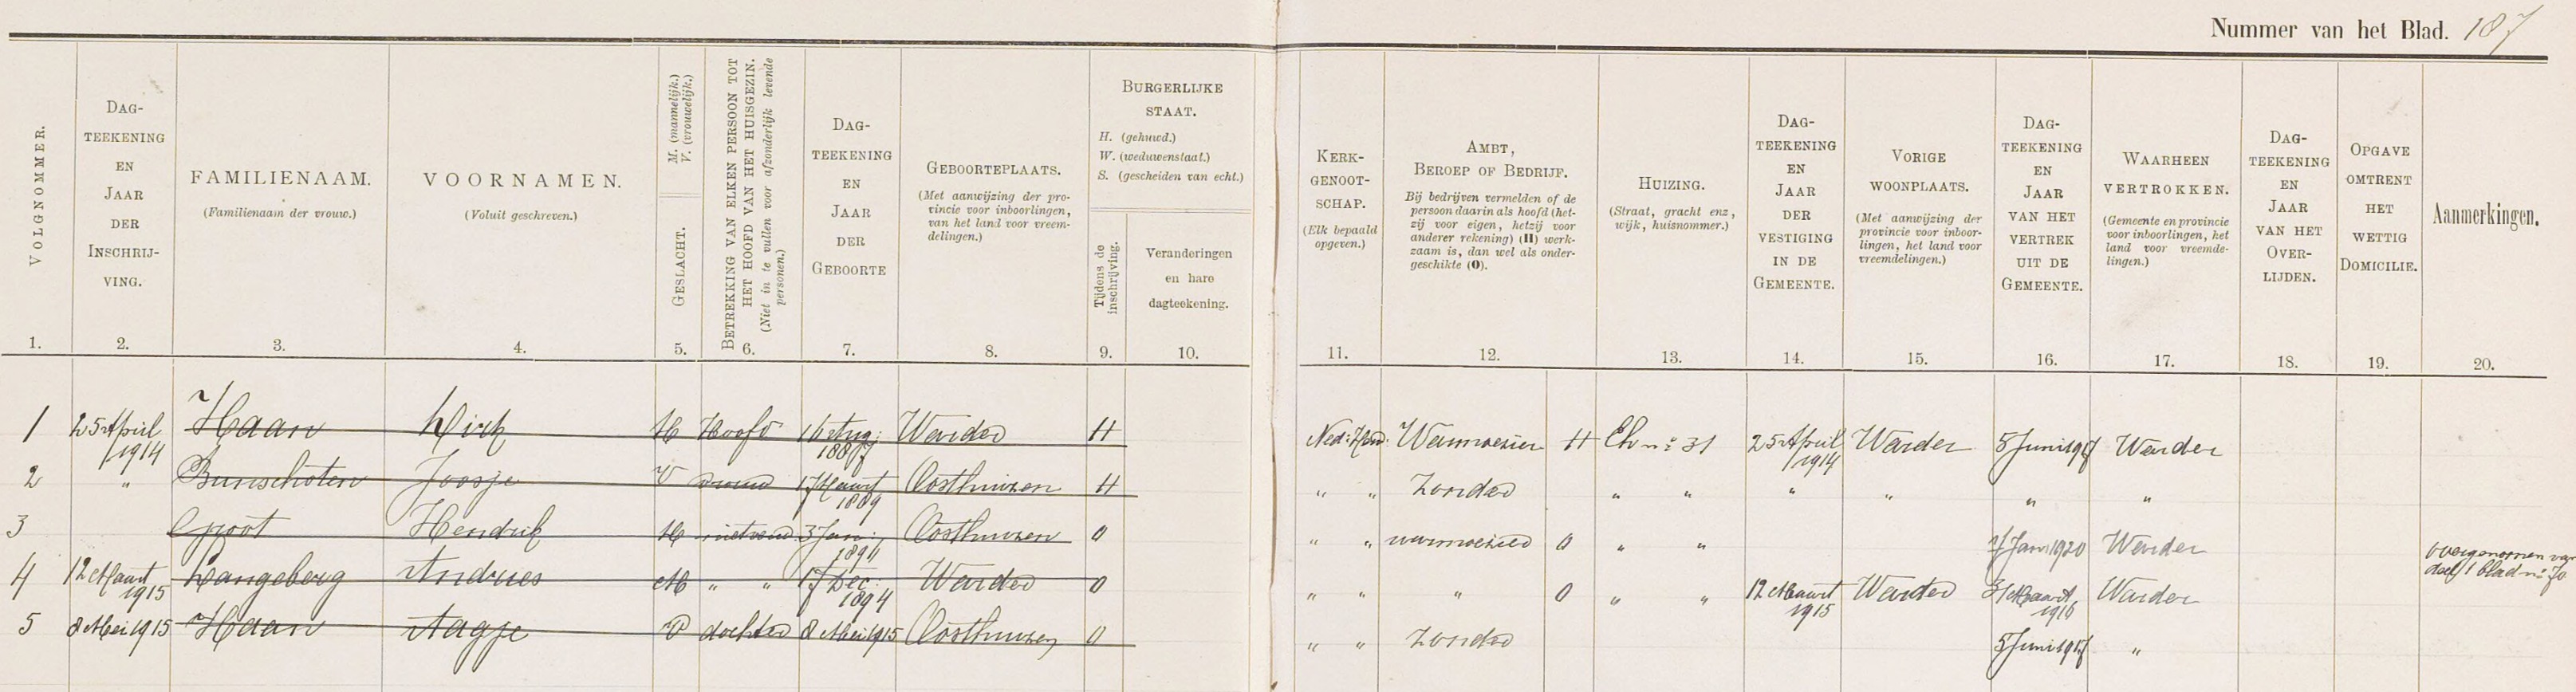 Nummer van het Blad. 187
VOLGNOMMER.
1.
DAG-
TEEKENING
EN
JAAR
DER
INSCHRIJ-
VING.
2.
FAMILIENAAM.
(Familienaam der vrouw.)
3.
VOORNAMEN.
(Voluit geschreven.)
4.
M. (mannelijk.)
V. (vrouwelijk.)
GESLACHT.
5.
BETREKKING VAN ELKEN PERSOON TOT
HET HOOFD VAN HET HUISGEZIN.
(Niet in te vullen voor afzonderlijk levende
personen.)
6.
DAG-
TEEKENING
EN
JAAR
DER
GEBOORTE
7.
GEBOORTEPLAATS.
(Met aanwijzing der pro-
vincie voor inboorlingen,
van het land voor vreem-
delingen.)
8.
BURGERLIJKE
STAAT.
H. (gehuwd.)
W. (weduwenstaat.)
S. (gescheiden van echt.)
Tijdens de
inschrijving.
9.
Veranderingen
en hare
dagteekening.
10.
KERK-
GENOOT-
SCHAP.
(Elk bepaald
opgeven.)
11.
AMBT,
BEROEP OF BEDRIJF.
Bij bedrijven vermelden of de
persoon daarin als hoofd (het-
zij voor eigen, hetzij voor
anderer rekening) (H) werk-
zaam is, dan wel als onder-
geschikte (O).
12.
HUIZING.
(Straat, gracht enz,
wijk, huisnommer.)
13.
DAG-
TEEKENING
EN
JAAR
DER
VESTIGING
IN DE
GEMEENTE.
14.
VORIGE
WOONPLAATS.
(Met aanwijzing der
provincie voor inboor-
lingen, het land voor
vreemdelingen.)
15.
DAG-
TEEKENING
EN
JAAR
VAN HET
VERTREK
UIT DE
GEMEENTE.
16.
WAARHEEN
VERTROKKEN.
(Gemeente en provincie
voor inboorlingen, het
land voor vreemde-
lingen.)
17.
DAG-
TEEKENING
EN
JAAR
VAN HET
OVER-
LIJDEN.
18.
OPGAVE
OMTRENT
HET
WETTIG
DOMICILIE.
19.
Aanmerkingen.
20.
1 25 April 1914 Haan Dirk M Hoofd 16 Aug: 1887 Warder H Ned: Herv: Warmoezier H Eh no 31 25 April 1914 Warder 5 Juni 1917 Warder
2 " Bunschoten Joosje V vrouw 17 Maart 1889 Oosthuizen H " " Zonder " " " " " "
3 Groot Hendrik M 3 Jan: 1894 Oosthuizen O " " warmoezier O " " 7 Jan 1920 Warder overgenomen van deel 1 blad no 70
4 12 Maart 1915 Langeberg Andries M " " 17 Dec: 1894 Warder O " " " O " " 12 Maart 1915 Warder 31 Maart 1916 Warder
5 8 Mei 1915 Haan Aagje V dochter 8 Mei 1915 Oosthuizen O " " Zonder 5 Juni 1917 "